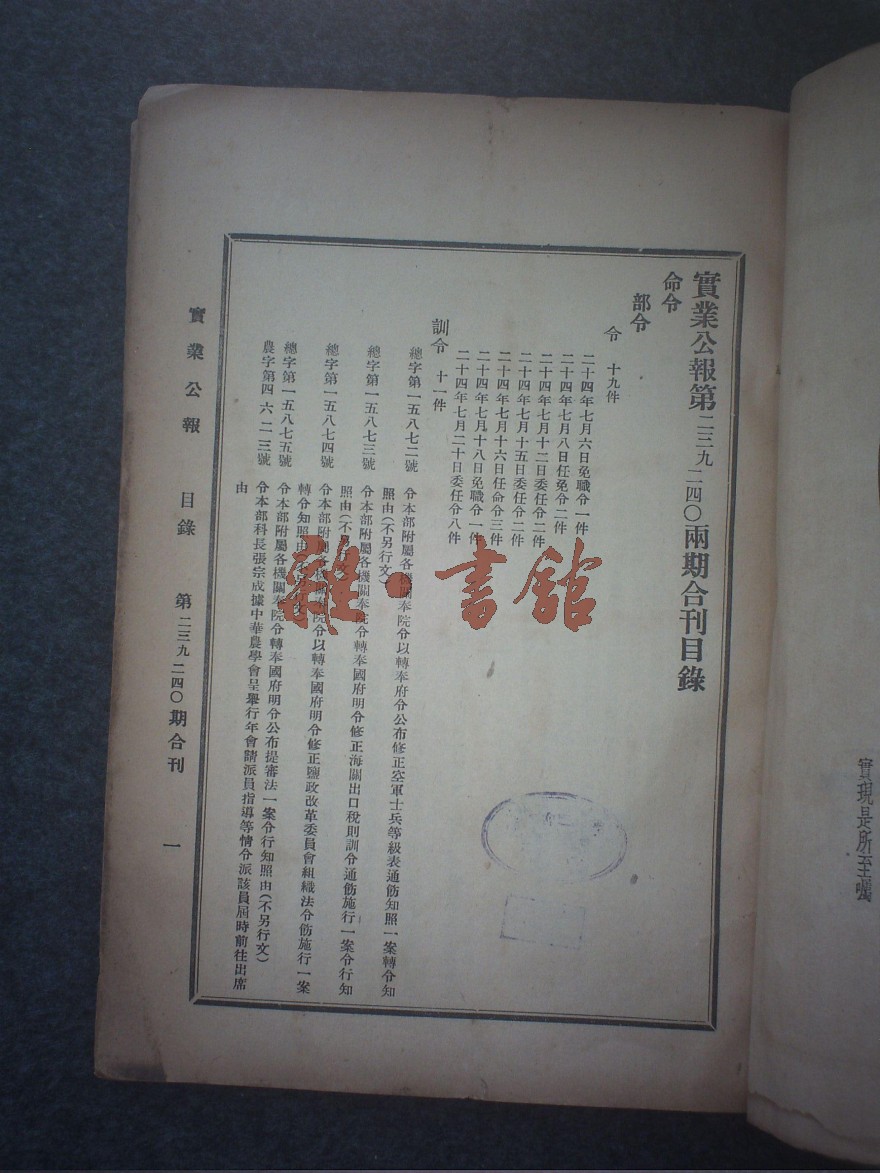 實業公報第二三九 二四〇兩期合刊目錄
命令
部令
令 十九件
二十四年七月六日免職令一件
二十四年七月八日任免令二件
二十四年七月十二日委任令二件
二十四年七月十五日委任令二件
二十四年七月十六日任命令三件
二十四年七月十八日免職令一件
二十四年七月二十日委任令八件
訓令 十一件
總字第一五八七二號 令本部附屬各機關奉院令以轉奉府令公布修正空軍士兵等級表通飭知照一案轉令知
照由(不另行文)
總字第一五八七三號 令本部附屬各機關奉院令轉奉國府明令修正海關出口稅則訓令通飭施行一案令行知
照由(不另行文)
總字第一五八七四號 令本部附屬各機關奉院令以轉奉國府明令修正鹽政改革委員會組織法令飭施行一案
轉令知照由(不另行文)
總字第一五八七五號 令本部附屬各機關奉院令轉奉國府明令公布提審法一案令行知照由(不另行文)
農字第四六二三號 令本部科長張宗成據中華農學會呈舉行年會請派員指導等情令派該員屆時前往出席
由
實業公報 目錄 第二三九 二四〇期合刊 一
雜·書館
實現是所至囑